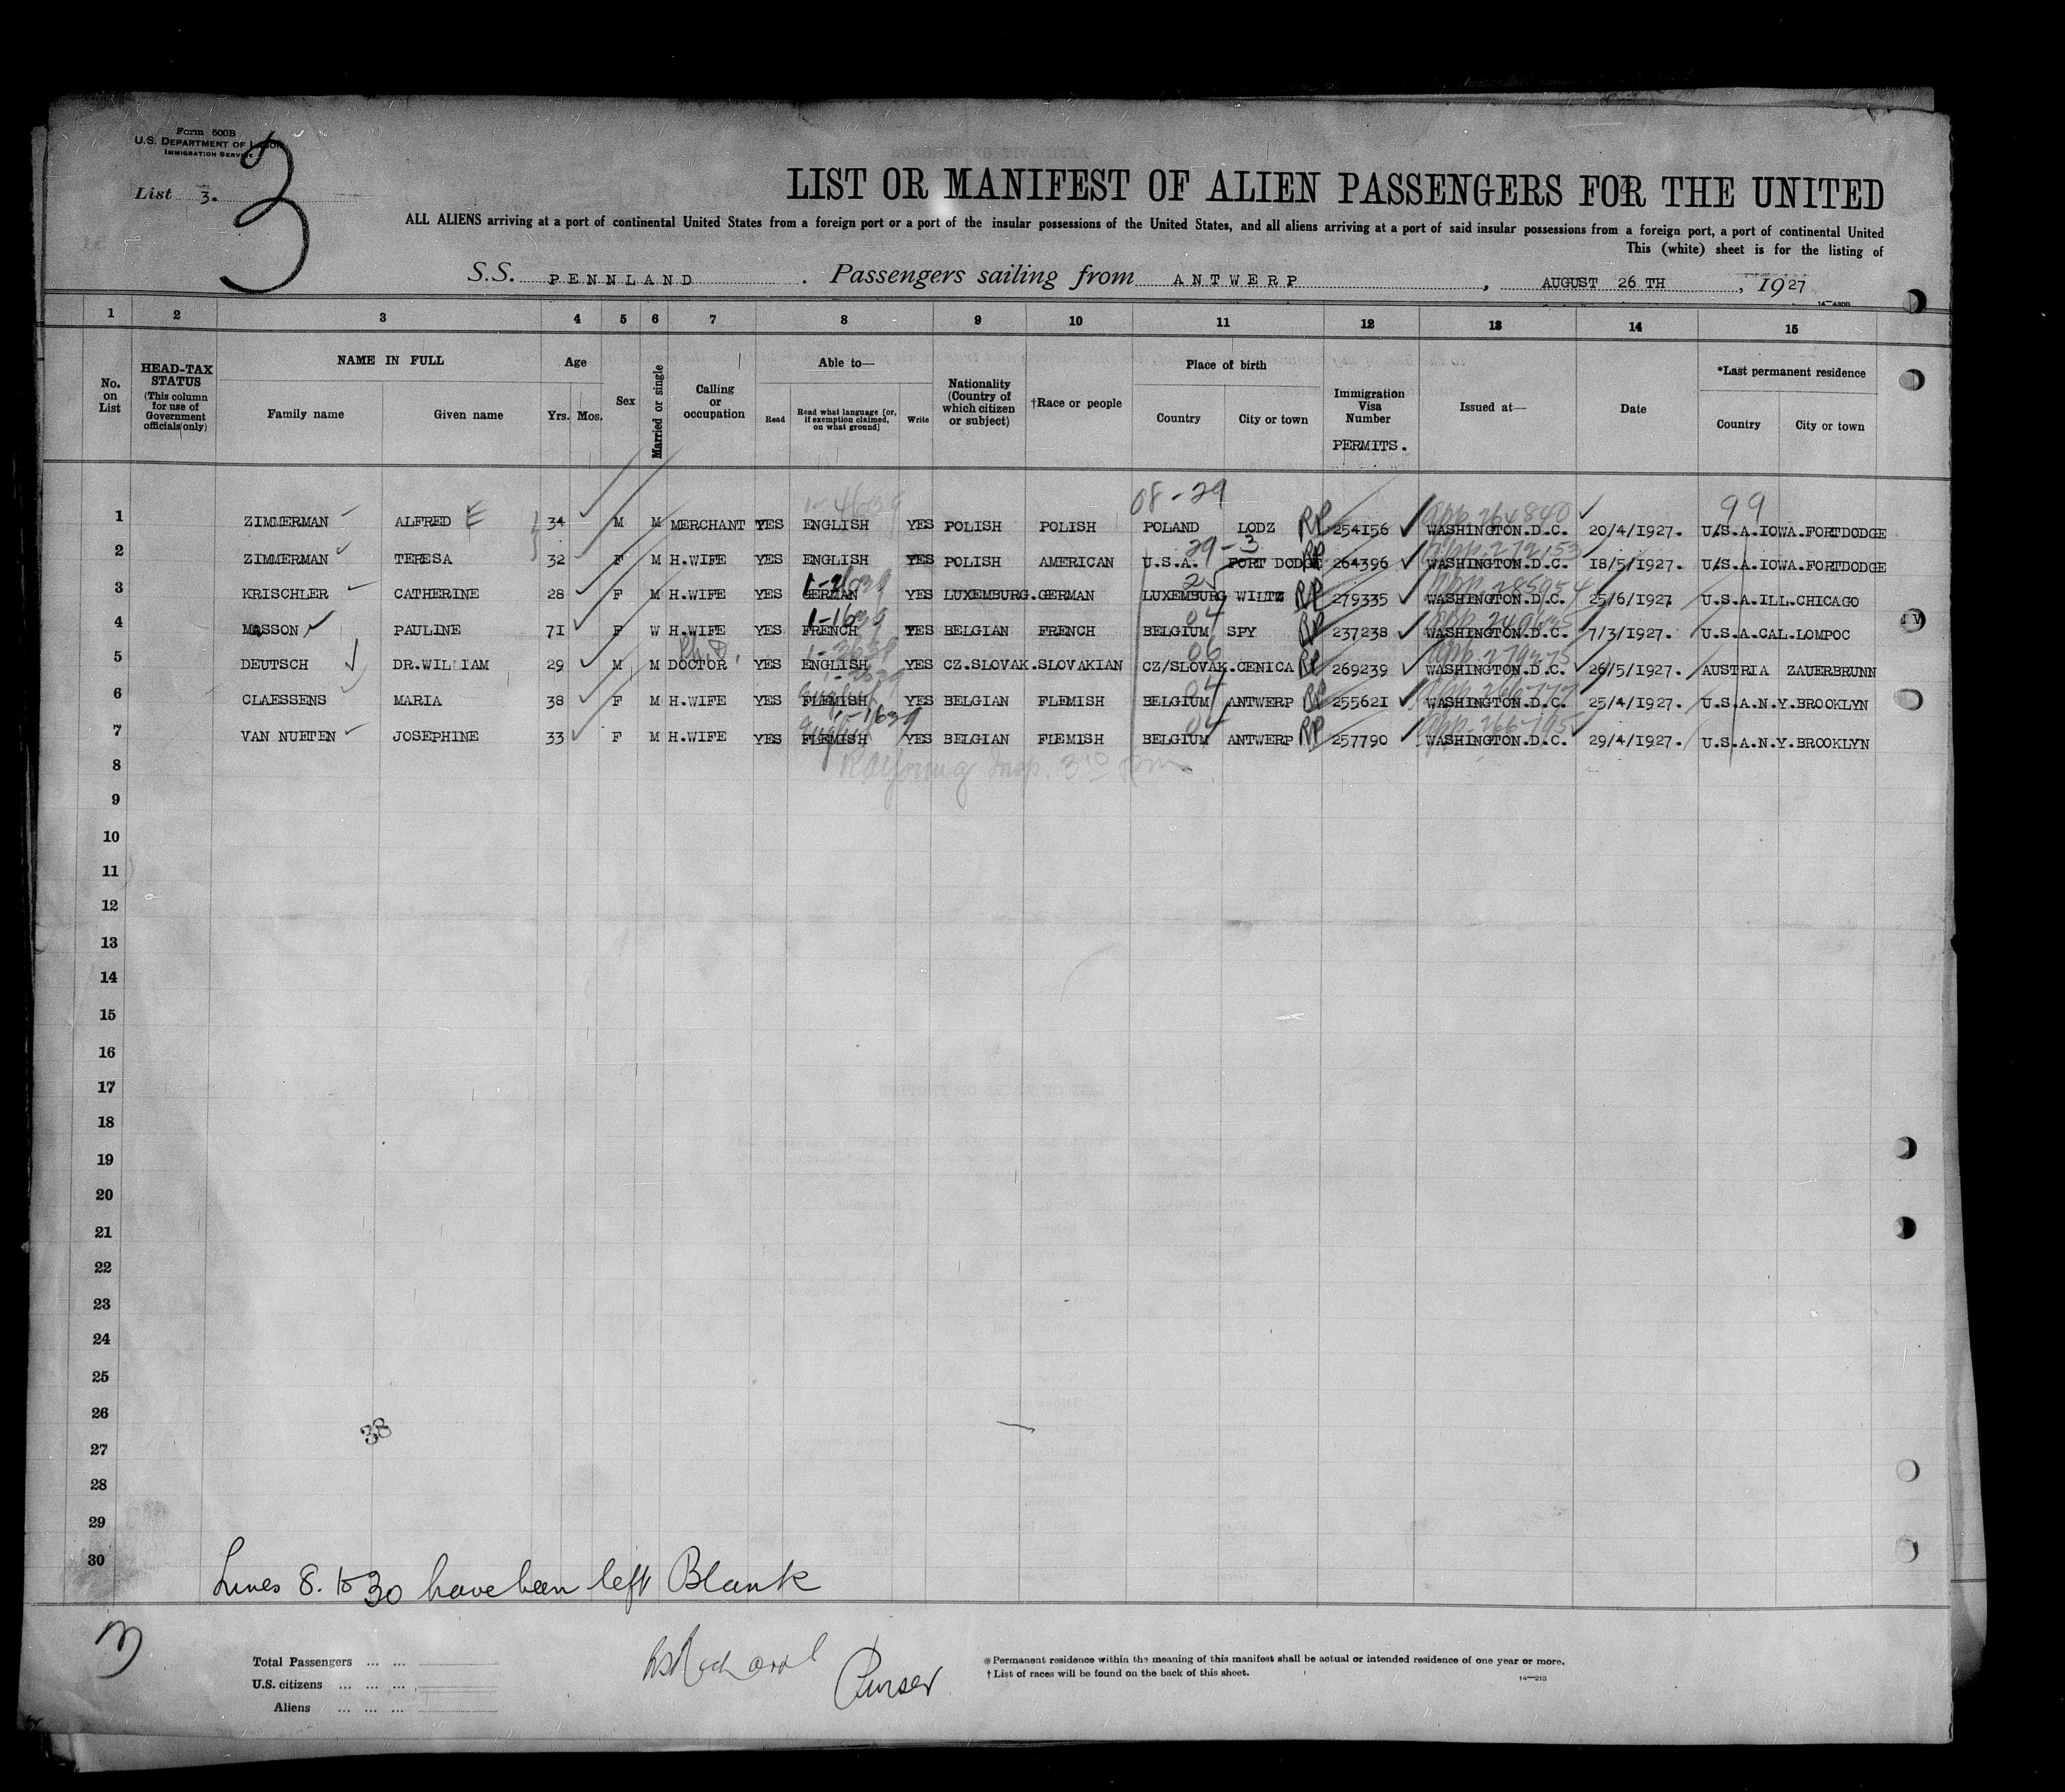 Form 500B
U.S. DEPARTMENT OF LABOR
IMMIGRATION SERVICE
3
List 3.
LIST OR MANIFEST OF ALIEN PASSENGERS FOR THE UNITED
ALL ALIENS arriving at a port of continental United States from a foreign port or a port of the insular possessions of the United States, and all aliens arriving at a port of said insular possessions from a foreign port, a port of continental United
This (white) sheet is for the listing of
S.S. PENNLAND . Passengers sailing from ANTWERP , AUGUST 26 TH , 1927
14—430B
1 2 3 4 5 6 7 8 9 10 11 12 13 14 15
No. on List
HEAD-TAX STATUS (This column for use of Government officials only)
NAME IN FULL
Family name Given name
Age
Yrs. Mos.
Sex
Married or single
Calling or occupation
Able to—
Read Read what language [or, if exemption claimed, on what ground] Write
Nationality (Country of which citizen or subject)
†Race or people
Place of birth
Country City or town
Immigration Visa Number
PERMITS.
Issued at—
Date
*Last permanent residence
Country City or town
08-29 99
1 ZIMMERMAN ALFRED E 34 M M MERCHANT YES ENGLISH YES POLISH POLISH POLAND LODZ RP 254156 WASHINGTON.D.C. 20/4/1927. U.S.A.IOWA.FORTDODGE
29-3
2 ZIMMERMAN TERESA 32 F M H.WIFE YES ENGLISH YES POLISH AMERICAN U.S.A. FORT DODGE RP 264396 WASHINGTON.D.C. 18/5/1927. U.S.A.IOWA.FORTDODGE
3 KRISCHLER CATHERINE 28 F M H.WIFE YES GERMAN YES LUXEMBURG.GERMAN LUXEMBURG WILTZ RP 279335 WASHINGTON.D.C. 25/6/1927 U.S.A.ILL.CHICAGO
04
4 MASSON PAULINE 71 F W H.WIFE YES FRENCH YES BELGIAN FRENCH BELGIUM SPY RP 237238 WASHINGTON.D.C. 7/3/1927. U.S.A.CAL.LOMPOC
Ph.D. 06
5 DEUTSCH DR.WILLIAM 29 M M DOCTOR YES ENGLISH YES CZ.SLOVAK.SLOVAKIAN CZ/SLOVAK.CENICA RP 269239 WASHINGTON.D.C. 26/5/1927. AUSTRIA ZAUERBRUNN
English 04
6 CLAESSENS MARIA 38 F M H.WIFE YES FLEMISH YES BELGIAN FLEMISH BELGIUM ANTWERP RP 255621 WASHINGTON.D.C. 25/4/1927. U.S.A.N.Y.BROOKLYN
English 04
7 VAN NUETEN JOSEPHINE 33 F M H.WIFE YES FLEMISH YES BELGIAN FLEMISH BELGIUM ANTWERP RP 257790 WASHINGTON.D.C. 29/4/1927. U.S.A.N.Y.BROOKLYN
8
9
10
11
12
13
14
15
16
17
18
19
20
21
22
23
24
25
26
38
27
28
29
30
Lines 8. to 30 have been left Blank
3
Total Passengers ... ...
U.S. citizens ... ... ...
Aliens ... ... ...
Purser
*Permanent residence within the meaning of this manifest shall be actual or intended residence of one year or more.
†List of races will be found on the back of this sheet.
14—213